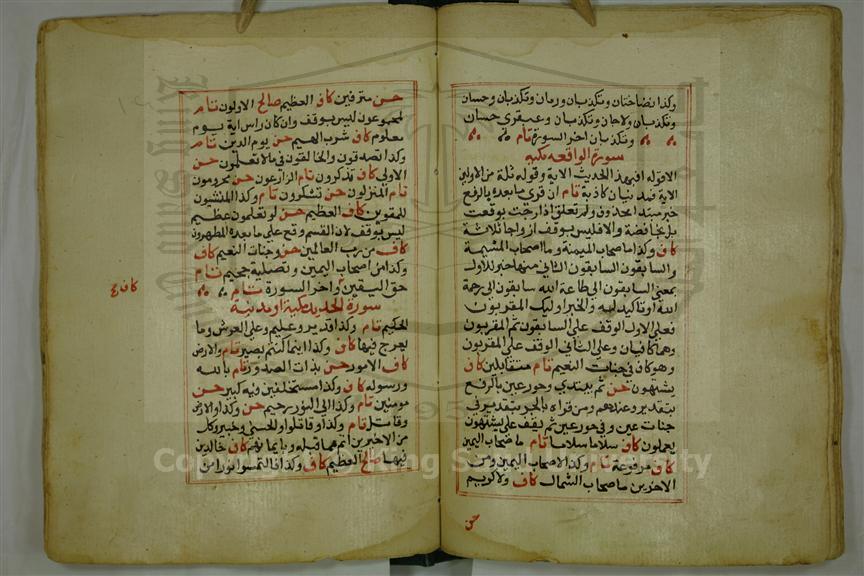 وكذا نضاختان وتكذبان ورمان وتكذبان وحسان
وتكذبان ولا جان وتكذبان وعبقري حسان
وتكذبان اخر السورة تام
سورة الواقعه مكية
الا قوله افبهذا الحديث الاية وقوله ثلة من الاولين
الاية فمدنيتان كاذبة تام ان قري ما بعده بالرفع
خبر مبتدا محذوف ولم تعلق اذا رجت بوقعت
بل بخافضة والا فليس بوقف ازواجا ثلاثة
كاف وكذا ما اصحاب الميمنة وما اصحاب المشيمة
والسابقون السابقون الثاني منهما خبر للاول
بمعني السابقون الي طاعة الله سابقون الي رحمة
الله او تاكيد له والخبر اوليك المقربون
فعلي الاول الوقف علي السابقون ثم المقربون
وهما كافيان وعلي الثاني الوقف علي المقربون
وهو كاف في جنات النعيم تام متقابلين كاف
يشتهون حسن ثم يبتدي وحور عين بالرفع
بتقدير وعندهم ومن قراه بالجر بتقدير في
جنات عين وفي حور عين لم يقف علي يشتهون
يعملون كاف سلاما سلاما تام ما اصحاب اليمين
كاف مرفوعة تام وكذا لاصحاب اليمين ومن
الاخرين ما اصحاب الشمال كاف ولا كريم
حسن
حسن مترفين كاف العظيم صالح الاولون تام
لمجموعون ليس بوقف وان كان راس اية يوم
معلوم كاف شرب الهيم حسن يوم الدين تام
وكذا تصدقون والخالقون في ما لا تعلمون حسن
الاولي كاف تذكرون تام الزارعون حسن محرومون
تام المنزلون حسن تشكرون تام وكذا المنشيون
للمقوين كاف العظيم حسن لو تعلمون عظيم
ليس بوقف لان القسم وقع علي ما بعده المطهرون
كاف من رب العالمين حسن وجنات النعيم كاف
وكذا من اصحاب اليمين وتصلية جحيم تام
حق اليقين واخر السورة تام
سورة الحديد مكية او مدنية
الحكيم تام وكذا قدير وعليم وعلي العرش وما
يعرج فيها كاف وكذا اينما كنتم بصير تام والارض
كاف الامور حسن بذات الصدور تام بالله
ورسوله كاف وكذا مستخلفين فيه كبير حسن
مومنين تام وكذا الي النور رحيم حسن وكذا والارض
وقاتل تام وكذا وقاتلوا والحسني وخبير وكل
من الاخيرين اتم مما قبله وبايمانهم كاف خالدين
فيها صالح العظيم كاف وكذا فالتمسوا نورا من
كاف
Copyright © King Saud University